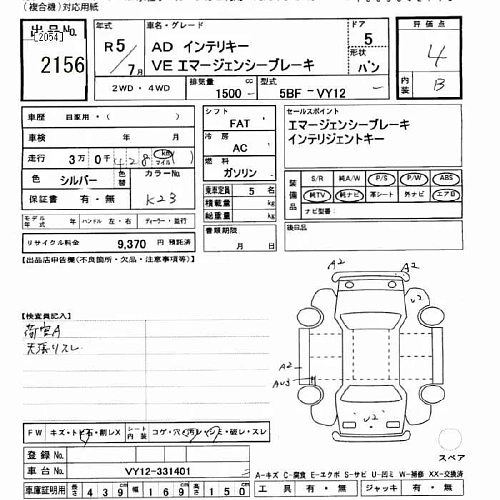 (複合機)対応用紙
出品No.
[2054]
2156
年式
R5/7月
車名・グレード
AD インテリキー
VE エマージェンシーブレーキ
ドア
5
形状
バン
評価点
4
内装
B
2WD・4WD
排気量
1500 cc
型式
5BF - VY12
車歴 自家用・( )
車検 年 月
走行 3万0千428 km マイル ( )
色 シルバー
色替
カラーNo.
K23
保証書 有・無
シフト
FAT
冷房
AC
燃料
ガソリン
乗車定員 5 名
積載量 kg
総重量 kg
書類期限
月 日
セールスポイント
エマージェンシーブレーキ
インテリジェントキー
装備品
S/R 純A/W P/S P/W ABS
純TV 純ナビ 革シート 外ナビ エアB
ナビ型番:
後日品
モデル年式 年 ハンドル 左・右 ディーラー・並行
リサイクル料金 9,370 円 預託済
【出品店申告欄(不良箇所・欠品・注意事項等)】
【検査員記入】
荷室A
天張リスレ
A2
A2
U2
A2
AU3
U2
スペア
FW キズ・トビ石・割レX
シート内張
コゲ・穴・汚レ・シミ・破レ・スレ
登録No.
車台No. VY12-331401
車庫証明用 長さ 439 幅 169 高さ 150
A-キズ C-腐食 E-エクボ S-サビ U-凹ミ W-補修 XX-交換済
工具 有・無 ジャッキ 有・無